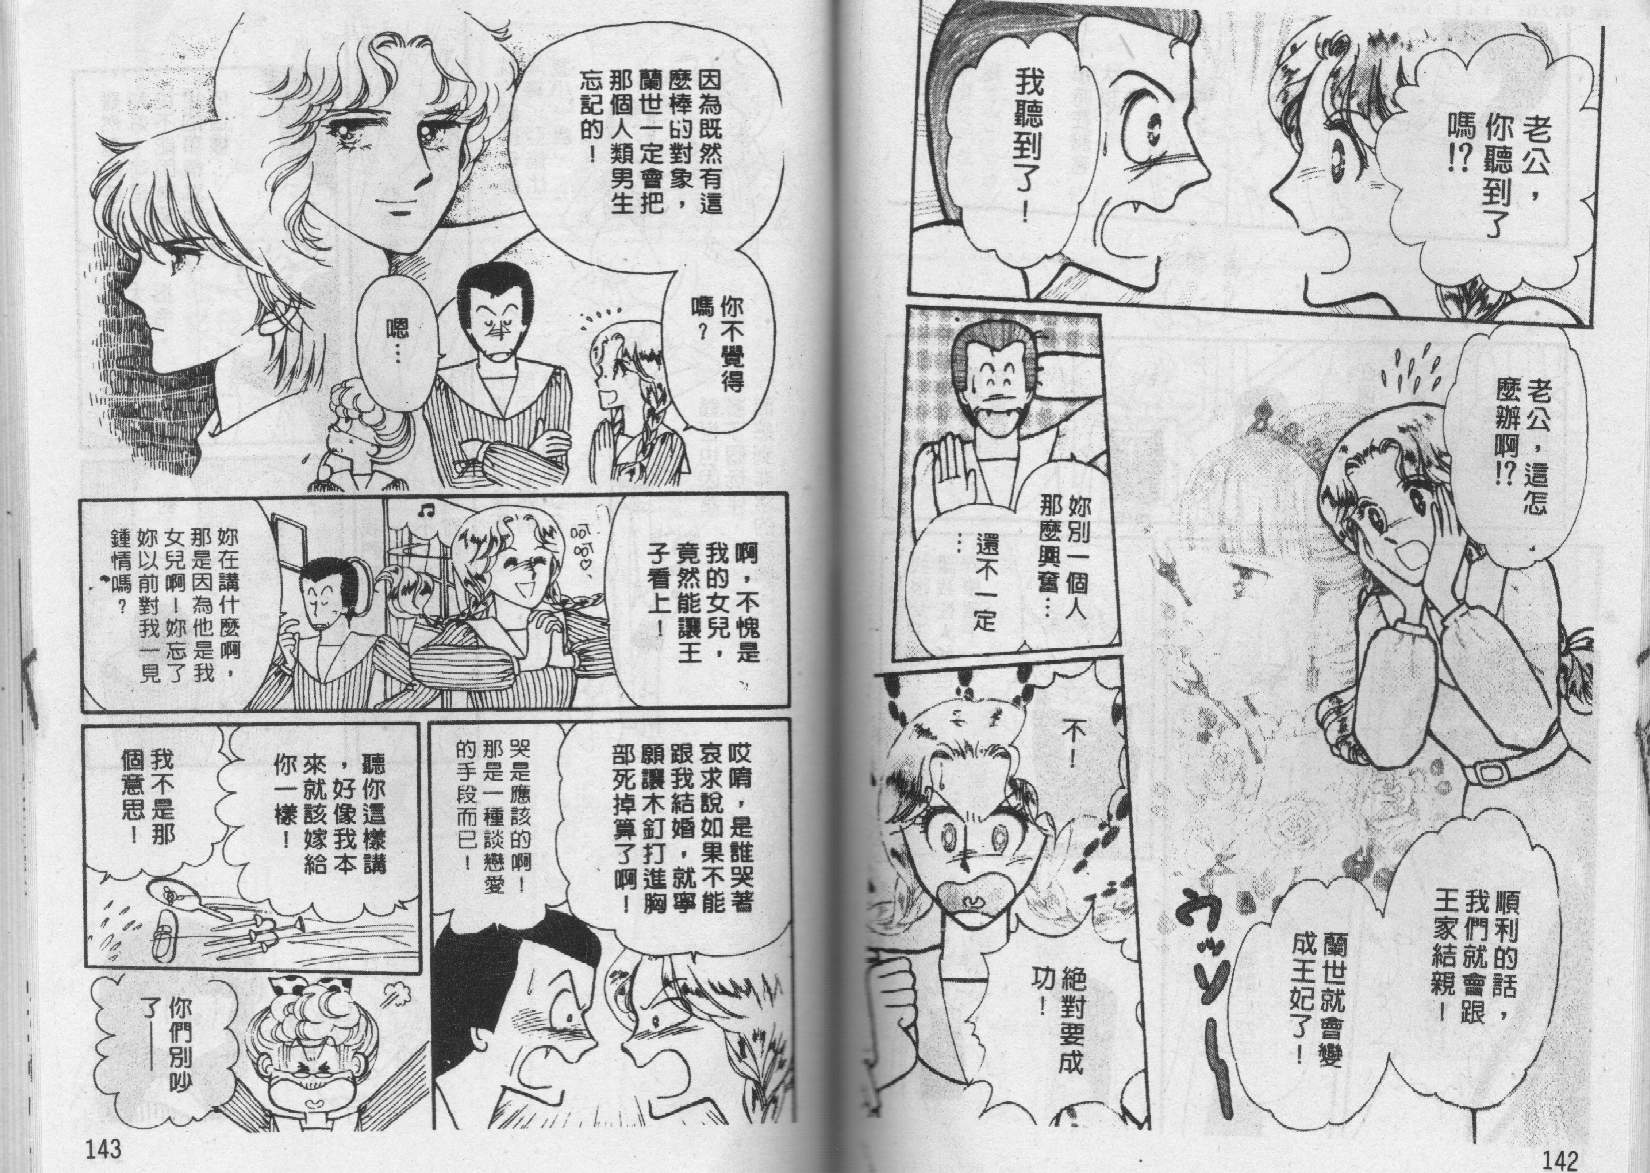 老公，
你聽到了
嗎!?
我聽到了！
老公，這怎
麼辦啊!?
順利的話，
我們就會跟
王家結親！
蘭世就會變
成王妃了！
妳別一個人
那麼興奮…
還不一定
…
不！
絕對要成
功！
142
因為既然有這
麼棒的對象，
蘭世一定會把
那個人類男生
忘記的！
你不覺得
嗎？
嗯…
啊，不愧是
我的女兒，
竟然能讓王
子看上！
呵呵♡
♫
妳在講什麼啊，
那是因為他是我
女兒啊！妳忘了
妳以前對我一見
鍾情嗎？
哎唷，是誰哭著
哀求說如果不能
跟我結婚，就寧
願讓木釘打進胸
部死掉算了啊！
哭是應該的啊！
那是一種談戀愛
的手段而已！
聽你這樣講
，好像我本
來就該嫁給
你一樣！
我不是那
個意思！
你們別吵
了──
143